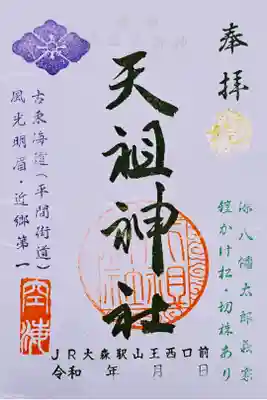 奉拝
源八幡太郎義家
鎧かけ松・切株あり
天祖神社
古東海道(平間街道)
風光明眉・近郷第一
空海
JR大森駅山王西口前
令和 年 月 日